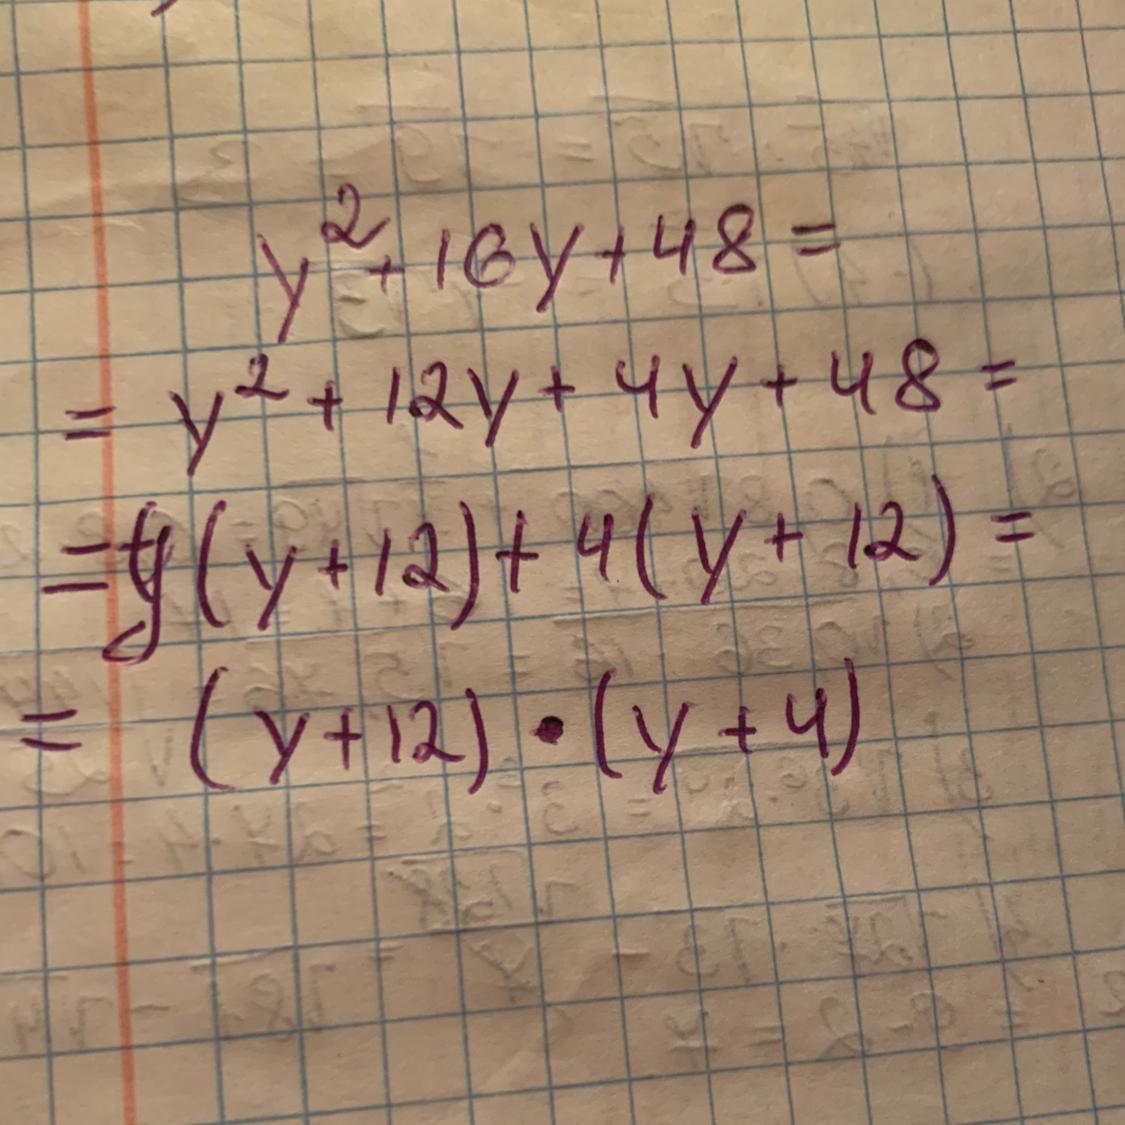 y² + 16y + 48 =
= y² + 12y + 4y + 48 =
= y (y + 12) + 4 ( y + 12) =
= (y + 12) · (y + 4)